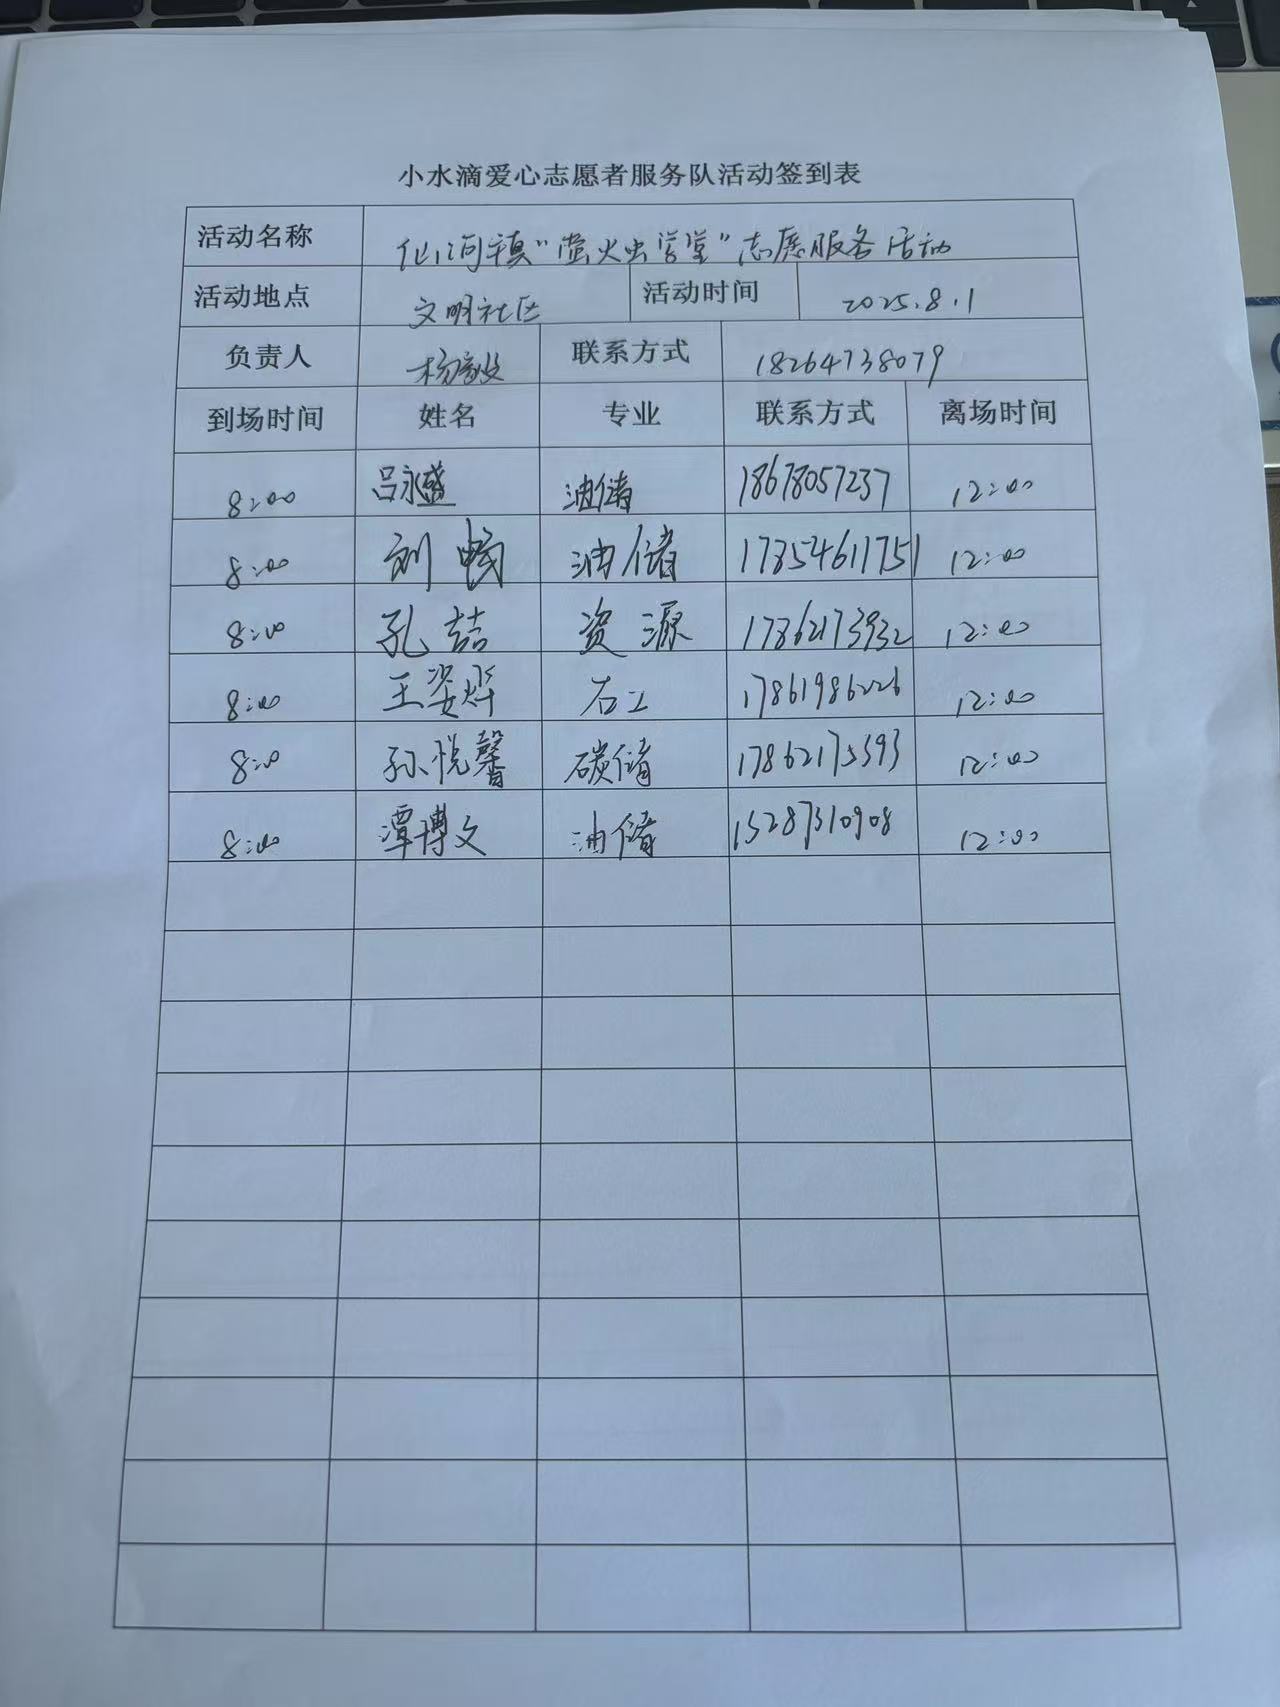 小水滴爱心志愿者服务队活动签到表
活动名称 仙河镇“萤火虫学堂”志愿服务活动
活动地点 文明社区 活动时间 2025.8.1
负责人 杨毅 联系方式 18264738079
到场时间 姓名 专业 联系方式 离场时间
8:00 吕永盛 油储 18678057237 12:00
8:00 刘畅 油储 17854611751 12:00
8:00 孔喆 资源 17862173932 12:00
8:00 王姿烨 石工 17861986226 12:00
8:00 孙悦馨 碳储 17862175393 12:00
8:00 潭博文 油储 15287310908 12:00